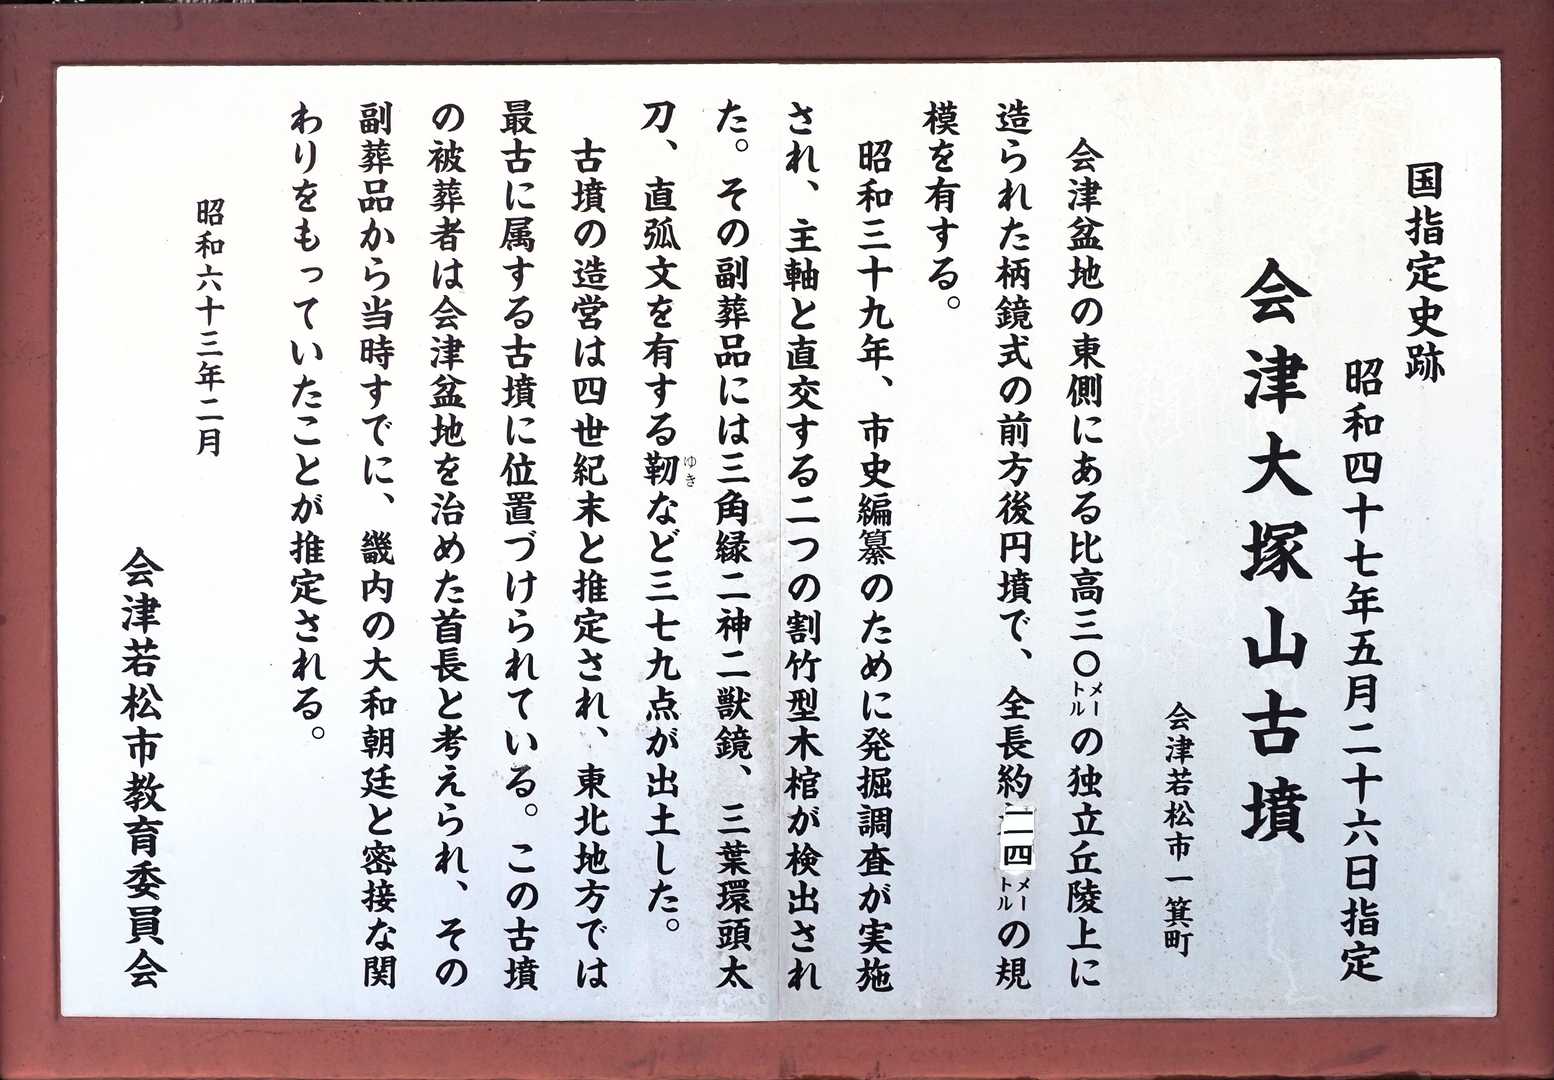 国指定史跡
昭和四十七年五月二十六日指定
会津大塚山古墳
会津若松市一箕町
会津盆地の東側にある比高三〇メートルの独立丘陵上に
造られた柄鏡式の前方後円墳で、全長約一一四メートルの規
模を有する。
昭和三十九年、市史編纂のために発掘調査が実施
され、主軸と直交する二つの割竹型木棺が検出され
た。その副葬品には三角縁二神二獣鏡、三葉環頭太
刀、直弧文を有する靱ゆきなど三七九点が出土した。
古墳の造営は四世紀末と推定され、東北地方では
最古に属する古墳に位置づけられている。この古墳
の被葬者は会津盆地を治めた首長と考えられ、その
副葬品から当時すでに、畿内の大和朝廷と密接な関
わりをもっていたことが推定される。
昭和六十三年二月
会津若松市教育委員会